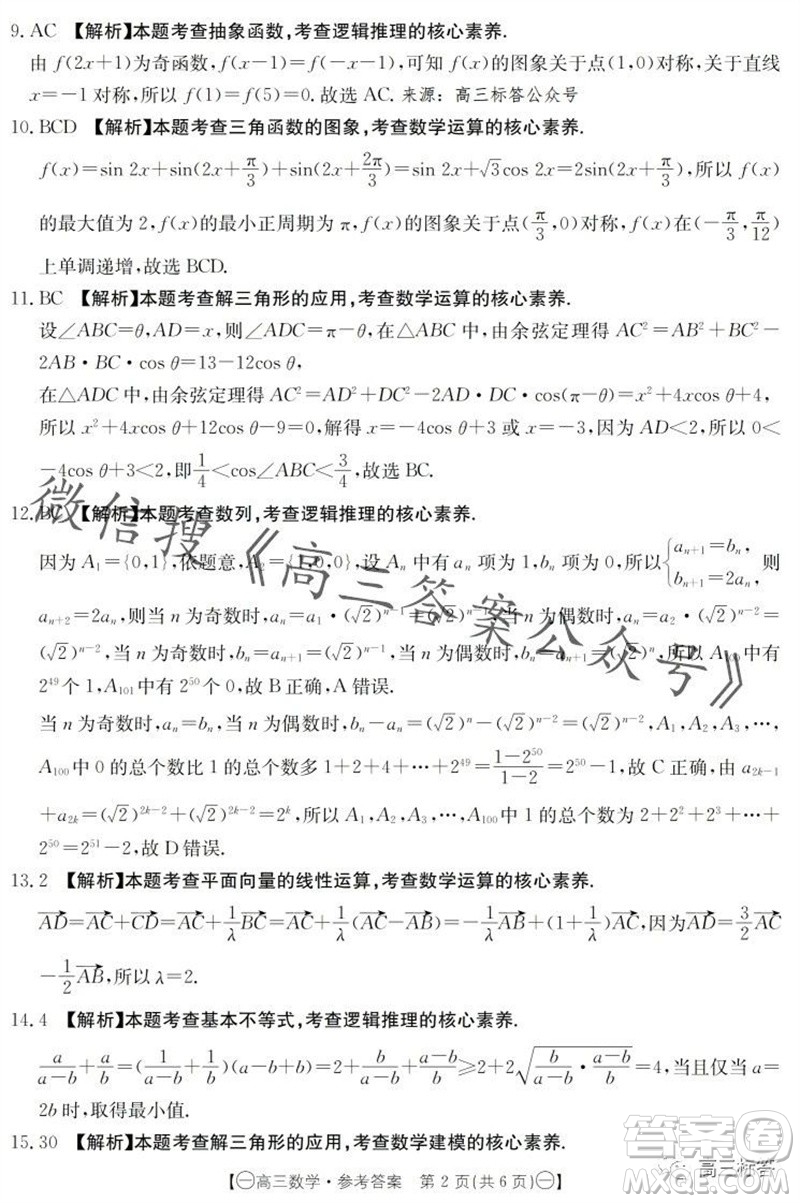 9. AC 【解析】本题考查抽象函数,考查逻辑推理的核心素养.
由 f(2x+1)为奇函数,f(x−1)=f(−x−1),可知 f(x)的图象关于点(1,0)对称,关于直线
x=−1 对称,所以 f(1)=f(5)=0.故选 AC. 来源：高三标答公众号
10. BCD 【解析】本题考查三角函数的图象,考查数学运算的核心素养.
f(x)=sin 2x+sin(2x+π/3)+sin(2x+2π/3)=sin 2x+√3cos 2x=2sin(2x+π/3),所以 f(x)
的最大值为 2,f(x)的最小正周期为 π,f(x)的图象关于点(π/3,0)对称,f(x)在(−π/3,π/12)
上单调递增,故选 BCD.
11. BC 【解析】本题考查解三角形的应用,考查数学运算的核心素养.
设∠ABC=θ,AD=x,则∠ADC=π−θ,在△ABC 中,由余弦定理得 AC²=AB²+BC²−
2AB·BC·cos θ=13−12cos θ,
在△ADC 中,由余弦定理得 AC²=AD²+DC²−2AD·DC·cos(π−θ)=x²+4xcos θ+4,
所以 x²+4xcos θ+12cos θ−9=0,解得 x=−4cos θ+3 或 x=−3,因为 AD<2,所以 0<
−4cos θ+3<2,即1/4<cos∠ABC<3/4,故选 BC.
12. BC 【解析】本题考查数列,考查逻辑推理的核心素养.
因为 A₁={0,1},依题意,A₂={1,0,0},设 Aₙ 中有 aₙ 项为1,bₙ 项为 0,所以{aₙ₊₁=bₙ, bₙ₊₁=2aₙ, 则
aₙ₊₂=2aₙ,则当 n 为奇数时,aₙ=a₁·(√2)ⁿ⁻¹=(√2)ⁿ⁻¹,当 n 为偶数时,aₙ=a₂·(√2)ⁿ⁻²
=(√2)ⁿ⁻²,当 n 为奇数时,bₙ=aₙ₊₁=(√2)ⁿ⁻¹,当 n 为偶数时,bₙ=aₙ₊₁=(√2)ⁿ,所以 A₁₀₀ 中有
2⁴⁹个 1,A₁₀₁中有 2⁵⁰个 0,故 B 正确,A 错误.
当 n 为奇数时,aₙ=bₙ,当 n 为偶数时,bₙ−aₙ=(√2)ⁿ−(√2)ⁿ⁻²=(√2)ⁿ⁻²,A₁,A₂,A₃,…,
A₁₀₀中 0 的总个数比 1 的总个数多 1+2+4+…+2⁴⁹=(1−2⁵⁰)/(1−2)=2⁵⁰−1,故 C 正确,由 a₂ₖ₋₁
+a₂ₖ=(√2)²ᵏ⁻²+(√2)²ᵏ⁻²=2ᵏ,所以 A₁,A₂,A₃,…,A₁₀₀中 1 的总个数为 2+2²+2³+…+
2⁵⁰=2⁵¹−2,故 D 错误.
13. 2 【解析】本题考查平面向量的线性运算,考查数学运算的核心素养.
AD⃗=AC⃗+CD⃗=AC⃗+1/λ BC⃗=AC⃗+1/λ(AC⃗−AB⃗)=−1/λ AB⃗+(1+1/λ)AC⃗,因为AD⃗=3/2 AC⃗
−1/2 AB⃗,所以 λ=2.
14. 4 【解析】本题考查基本不等式,考查逻辑推理的核心素养.
a/(a−b)+a/b=(1/(a−b)+1/b)(a−b+b)=2+b/(a−b)+(a−b)/b≥2+2√(b/(a−b)·(a−b)/b)=4,当且仅当 a=
2b 时,取得最小值.
15. 30 【解析】本题考查解三角形的应用,考查数学建模的核心素养.
【㊀高三数学·参考答案 第 2 页(共 6 页)㊀】
微信搜《高三答案公众号》
答案圈
MXQE.COM
高三标答